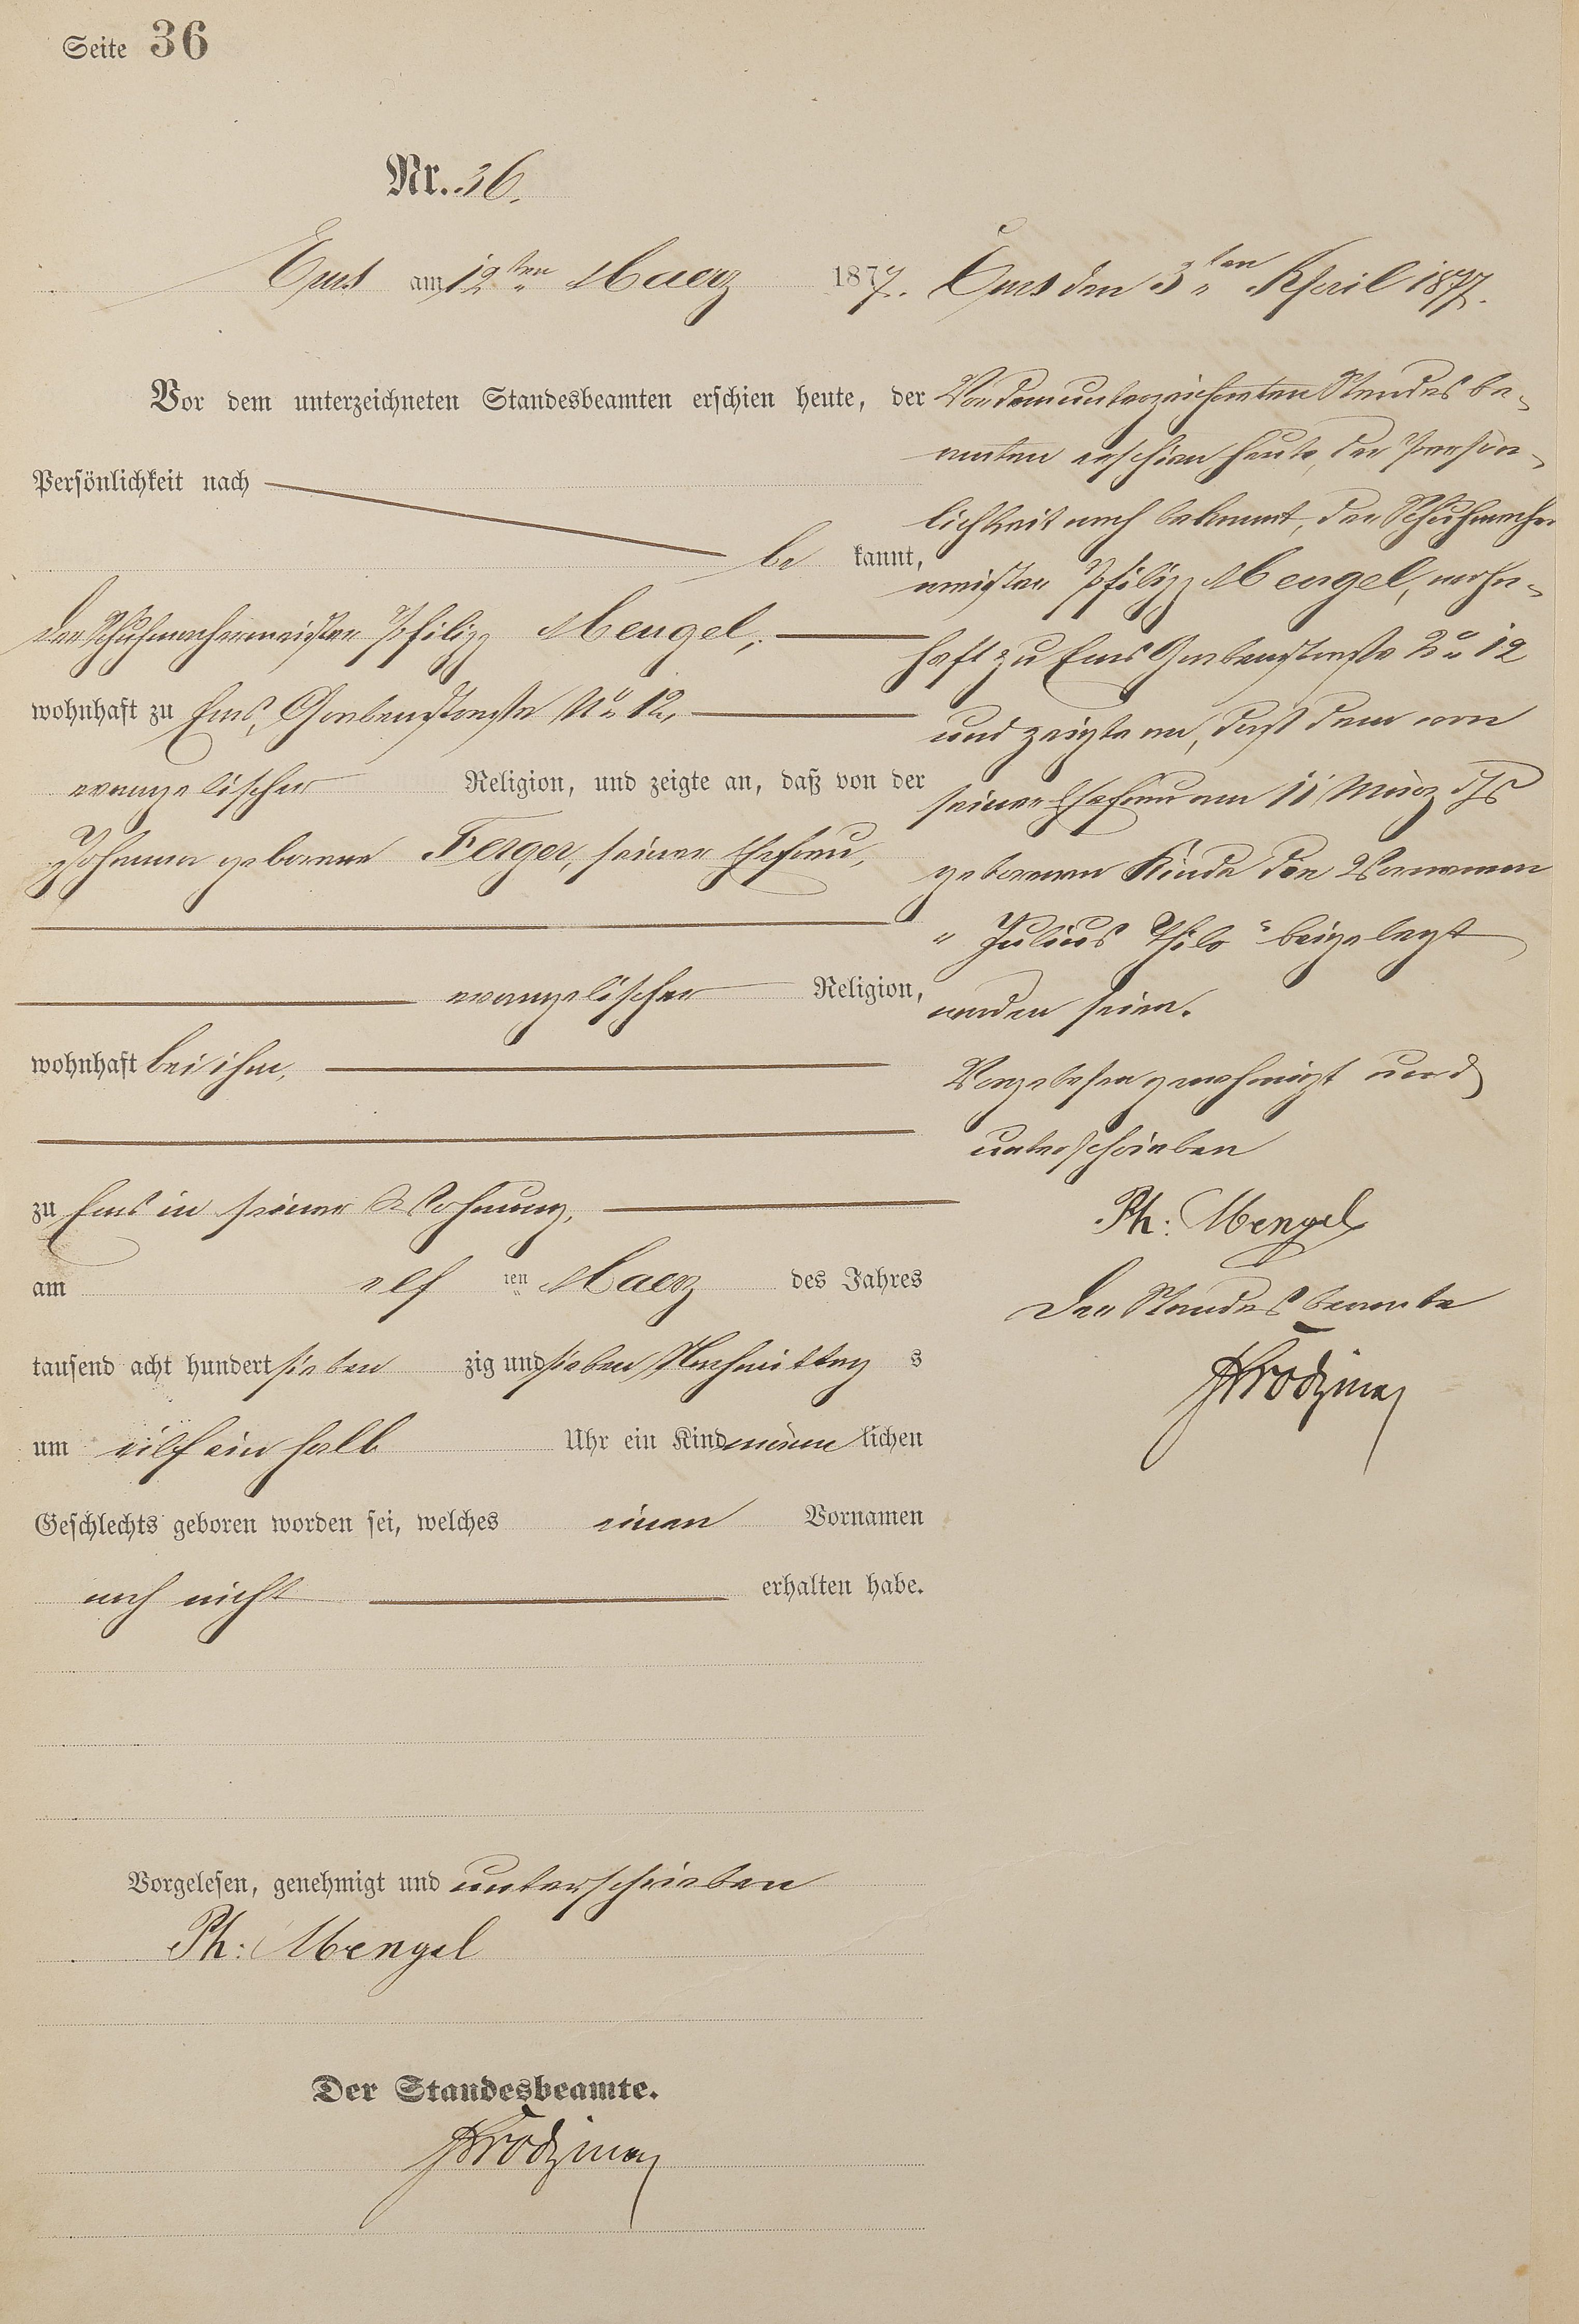 Seite 36
Nr. 36.
Ems am 12ten Maerz 1877.
Vor dem unterzeichneten Standesbeamten erschien heute, der
Persönlichkeit nach
be kannt,
der Schuhmachermeister Philipp Mengel,
wohnhaft zu Ems, Grabenstraße No 12,
evangelischer Religion, und zeigte an, daß von der
Johanna geborene Ferger, seiner Ehefrau,
evangelischer Religion,
wohnhaft bei ihm,
zu Ems in seiner Wohnung,
am elf ten Maerz des Jahres
tausend acht hundert sieben zig und sieben Nachmittag s
um eilf ein halb Uhr ein Kind männ lichen
Geschlechts geboren worden sei, welches einen Vornamen
noch nicht erhalten habe.
Vorgelesen, genehmigt und unterschrieben
Ph: Mengel
Der Standesbeamte.
Ems den 3ten April 1877.
Vor dem unterzeichneten Standesbe-
amten erschien heute, der Persön-
lichkeit nach bekannt, der Schuhmacher
meister Philipp Mengel, wohn-
haft zu Ems Grabenstraße No 12
und zeigte an, daß dem von
seiner Ehefrau am 11 März djs
geborenen Kinde die Vornamen
"Julius Thilo" beigelegt
worden seien.
Vorgelesen genehmigt und
unterschrieben
Ph: Mengel
Der Standesbeamte